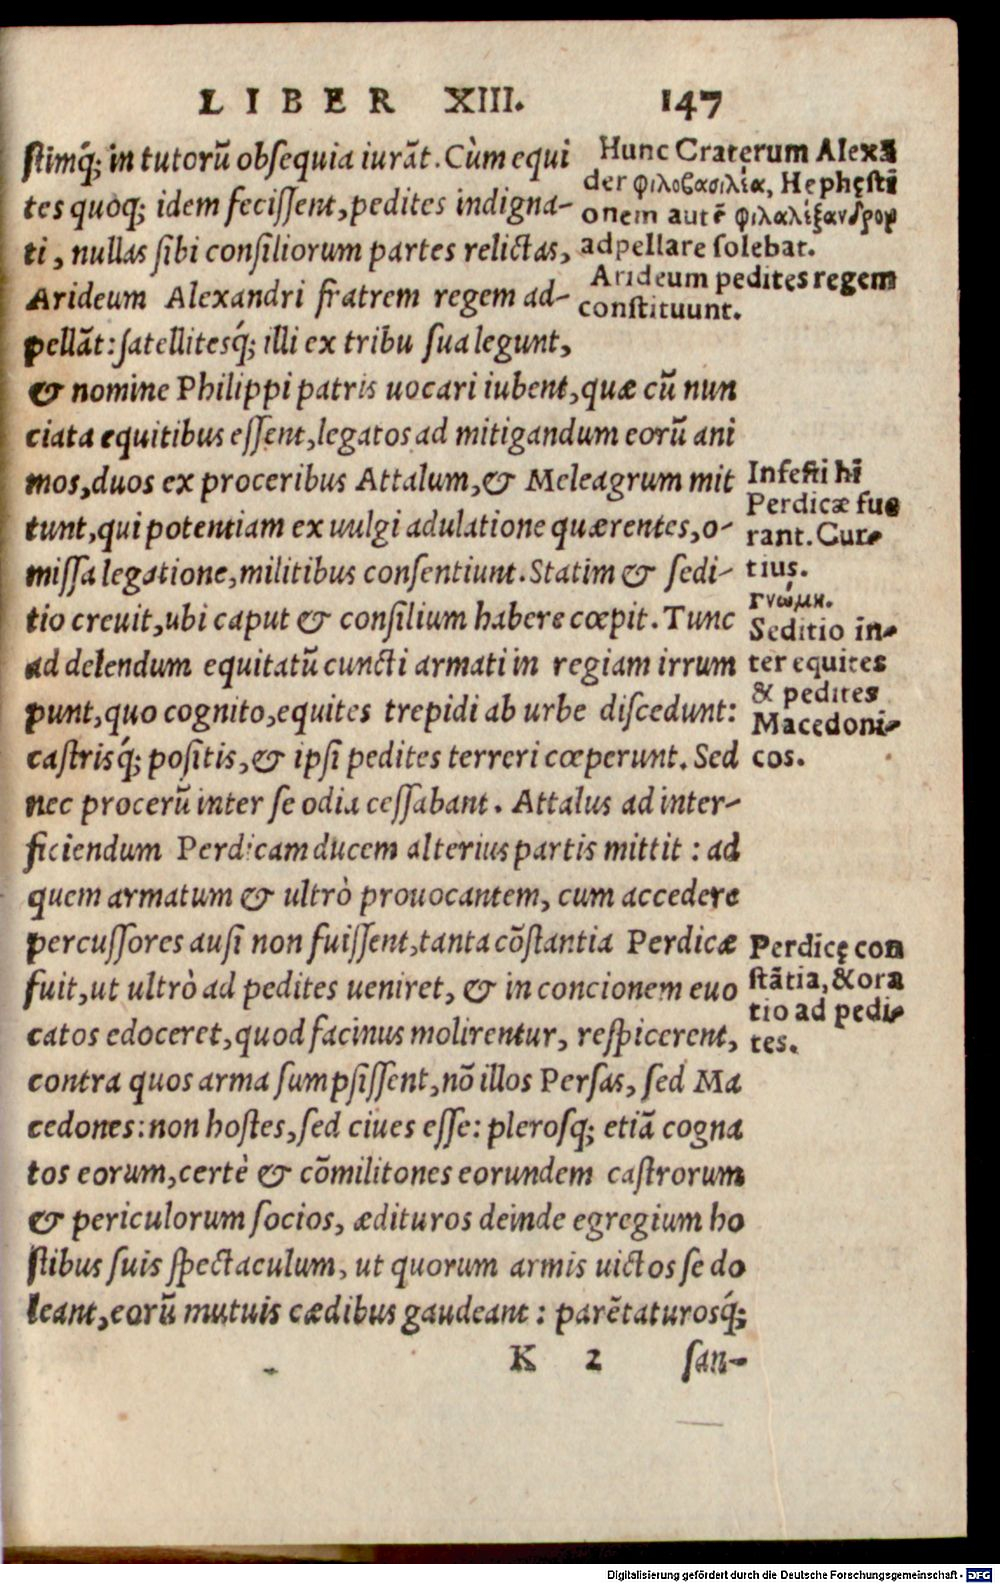 LIBER XIII. 147
stimq́; in tutorũ obsequia iurãt. Cùm equi
tes quoq; idem fecissent, pedites indigna-
ti, nullas sibi consiliorum partes relictas,
Arideum Alexandri fratrem regem ad-
pellãt: satellitesq́; illi ex tribu sua legunt,
& nomine Philippi patris uocari iubent, quæ cũ nun
ciata equitibus essent, legatos ad mitigandum eorũ ani
mos, duos ex proceribus Attalum, & Meleagrum mit
tunt, qui potentiam ex uulgi adulatione quærentes, o-
missa legatione, militibus consentiunt. Statim & sedi-
tio creuit, ubi caput & consilium habere cœpit. Tunc
ad delendum equitatũ cuncti armati in regiam irrum
punt, quo cognito, equites trepidi ab urbe discedunt:
castrisq́; positis, & ipsi pedites terreri cœperunt. Sed
nec procerũ inter se odia cessabant. Attalus ad inter-
ficiendum Perdicam ducem alterius partis mittit: ad
quem armatum & ultrò prouocantem, cum accedere
percussores ausi non fuissent, tanta cõstantia Perdicæ
fuit, ut ultrò ad pedites ueniret, & in concionem euo
catos edoceret, quod facinus molirentur, respicerent,
contra quos arma sumpsissent, nõ illos Persas, sed Ma
cedones: non hostes, sed ciues esse: plerosq; etiã cogna
tos eorum, certè & cõmilitones eorundem castrorum
& periculorum socios, ædituros deinde egregium ho
stibus suis spectaculum, ut quorum armis uictos se do
leant, eorũ mutuis cædibus gaudeant: parẽtaturosq́;
K 2 san-
Hunc Craterum Alexã
der φιλοβασιλέα, Hephęstĩ
onem autẽ φιλαλέξανδρον
adpellare solebat.
Arideum pedites regem
constituunt.
Infesti hĩ
Perdicæ fue
rant. Cur-
tius.
γνώμη.
Seditio in-
ter equites
& pedites
Macedoni-
cos.
Perdicę con
stãtia, & ora
tio ad pedi-
tes.
Digitalisierung gefördert durch die Deutsche Forschungsgemeinschaft - DFG